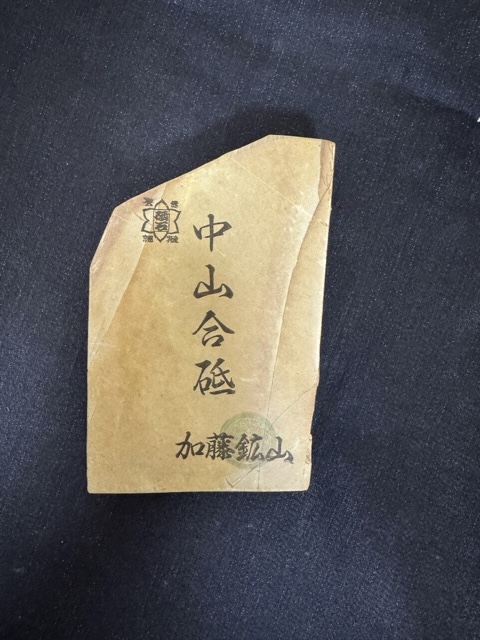 中山合砥
加藤鉱山
砥石